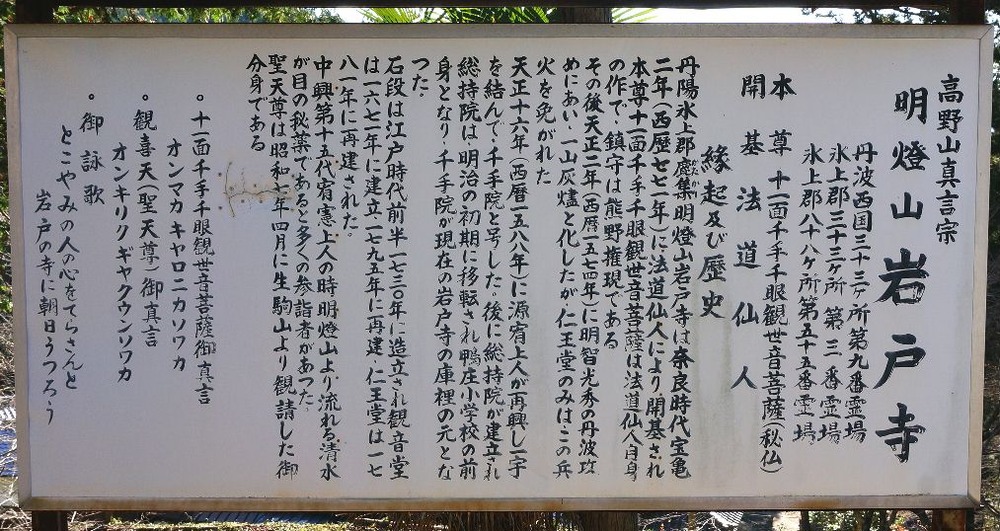 高野山真言宗
明燈山岩戸寺
丹波西国三十三ヶ所第九番霊場
氷上郡三十三ヶ所第三番霊場
氷上郡八十八ヶ所第五十五番霊場
本尊 十一面千手千眼観世音菩薩(秘仏)
開基 法道仙人
縁起及び歴史
丹陽氷上郡鹿集明燈山岩戸寺は奈良時代宝亀
二年(西歴七七一年)に法道仙人により開基され
本尊十一面千手千眼観世音菩薩は法道仙人自身
の作で、鎮守は熊野権現である
その後天正二年(西暦一五七四年)に明智光秀の丹波攻
めにあい、一山灰燼と化したが仁王堂のみはこの兵
火を免がれた
天正十六年(西暦一五八八年)に源宥上人が再興し一宇
を結んで千手院と号した、後に総持院が建立され
総持院は、明治の初期に移転され鴨庄小学校の前
身となり、千手院が現在の岩戸寺の庫裡の元とな
つた
石段は江戸時代前半一七三〇年に造立され観音堂
は一六七一年に建立、一七九五年に再建、仁王堂は一七
八一年に再建された。
中興第十五代宥憲上人の時明燈山より流れる清水
が目の秘薬であると多くの参詣者があつた、
聖天尊は昭和七年四月に生駒山より観請した御
分身である
。十一面千手千眼観世音菩薩御真言
オンマカキャロニカソワカ
。観喜天(聖天尊)御真言
オンキリクギャクウンソワカ
。御詠歌
とこやみの人の心をてらさんと
岩戸の寺に朝日うつろう